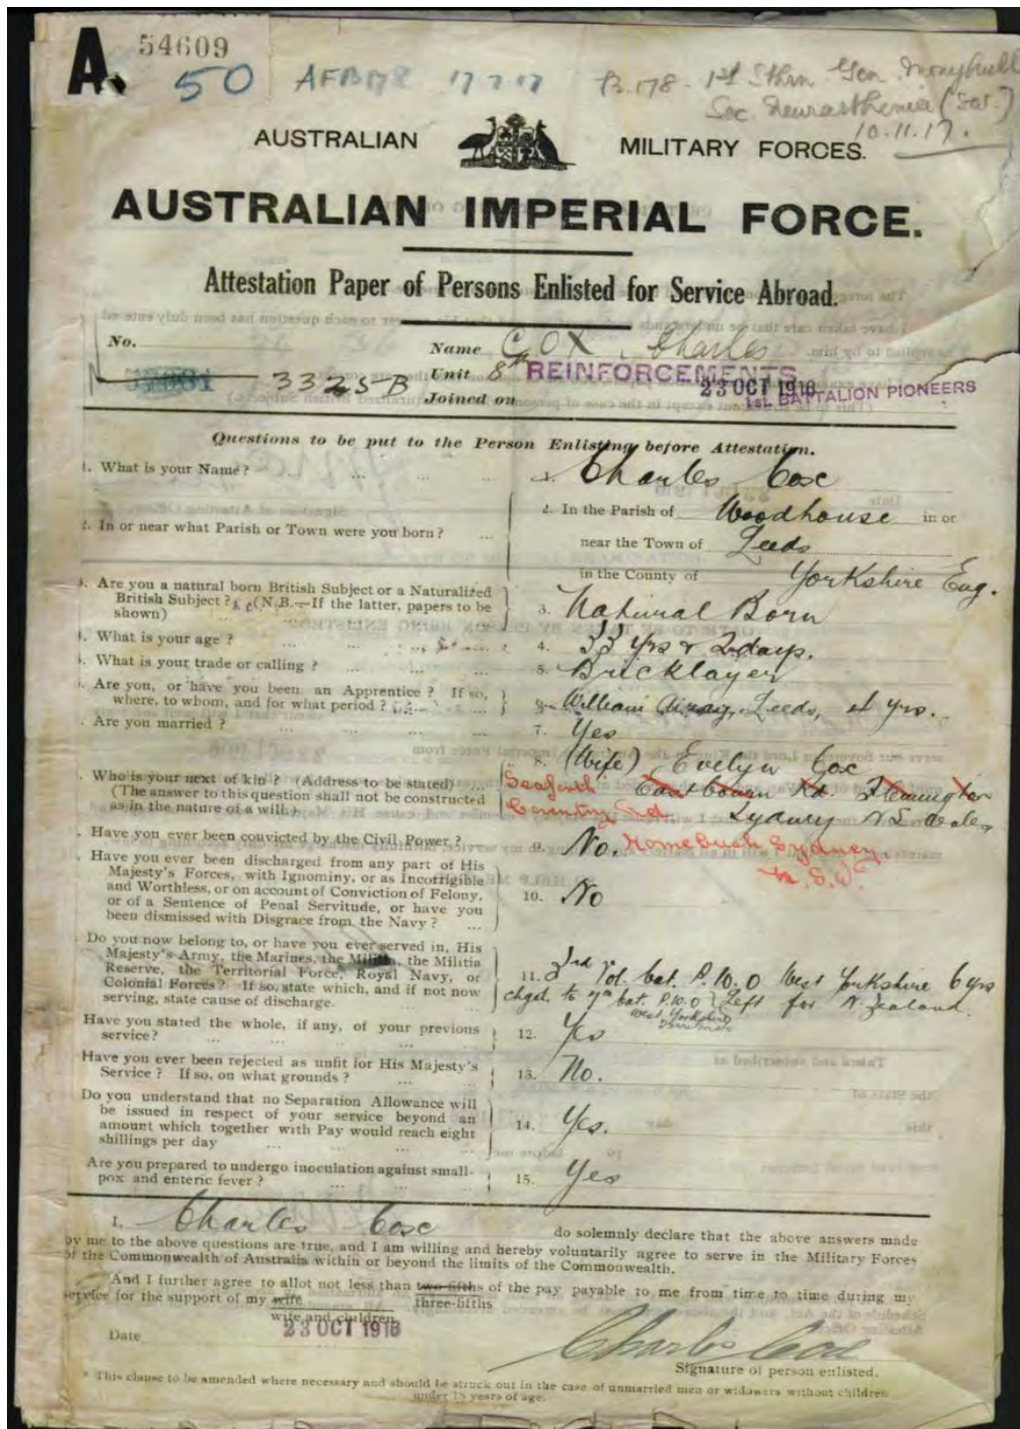 A. 54609
50 AFB178 17 7 17 B.178. 1st Sthn Gen Monyhull
Sec. Neurasthenia (Sat.)
10.11.17.
AUSTRALIAN MILITARY FORCES.
AUSTRALIAN IMPERIAL FORCE.
Attestation Paper of Persons Enlisted for Service Abroad.
No. Name COX Charles
3325B Unit 8th REINFORCEMENTS
1st. BATTALION PIONEERS
Joined on 23 OCT 1916
Questions to be put to the Person Enlisting before Attestation.
1. What is your Name? ... ... ... ... 1. Charles Cox
2. In or near what Parish or Town were you born? ... 2. In the Parish of Woodhouse in or
near the Town of Leeds
in the County of Yorkshire Eng.
3. Are you a natural born British Subject or a Naturalized
British Subject? (N.B.—If the latter, papers to be
shown) 3. Natural Born
4. What is your age? ... ... 4. 33 yrs & 2 days.
5. What is your trade or calling? ... ... ... 5. Bricklayer
Are you, or have you been an Apprentice? If so,
where, to whom, and for what period? William Airay, Leeds, yrs.
Are you married? ... ... ... 7. Yes
8. (Wife) Evelyn Cox
Who is your next of kin? (Address to be stated) ... Seaforth Eastbourn Rd. Flemington
(The answer to this question shall not be constructed
as in the nature of a will.) Coventry Rd. Sydney N S Wales
Have you ever been convicted by the Civil Power? ... 9. No. Homebush Sydney.
N.S.W.
Have you ever been discharged from any part of His
Majesty's Forces, with Ignominy, or as Incorrigible
and Worthless, or on account of Conviction of Felony,
or of a Sentence of Penal Servitude, or have you
been dismissed with Disgrace from the Navy? ... 10. No
Do you now belong to, or have you ever served in, His
Majesty's Army, the Marines, the Militia, the Militia
Reserve, the Territorial Force, Royal Navy, or
Colonial Forces? If so, state which, and if not now
serving, state cause of discharge. 11. 3rd Vol. bat. P.W.O West Yorkshire 6 yrs
chgd. to 7th bat. P.W.O Left for N. Zealand.
West Yorkshire
Territorials
Have you stated the whole, if any, of your previous
service? ... ... ... ... 12. Yes
Have you ever been rejected as unfit for His Majesty's
Service? If so, on what grounds? ... ... 13. No.
Do you understand that no Separation Allowance will
be issued in respect of your service beyond an
amount which together with Pay would reach eight
shillings per day ... ... ... ... 14. Yes.
Are you prepared to undergo inoculation against small-
pox and enteric fever? ... ... ... 15. Yes
I, Charles Cox do solemnly declare that the above answers made
by me to the above questions are true, and I am willing and hereby voluntarily agree to serve in the Military Forces
of the Commonwealth of Australia within or beyond the limits of the Commonwealth.
And I further agree to allot not less than two-fifths of the pay payable to me from time to time during my
three-fifths
service for the support of my wife
wife and children
Date 23 OCT 1916 Charles Cox
Signature of person enlisted.
* This clause to be amended where necessary and should be struck out in the case of unmarried men or widowers without children
under 18 years of age.